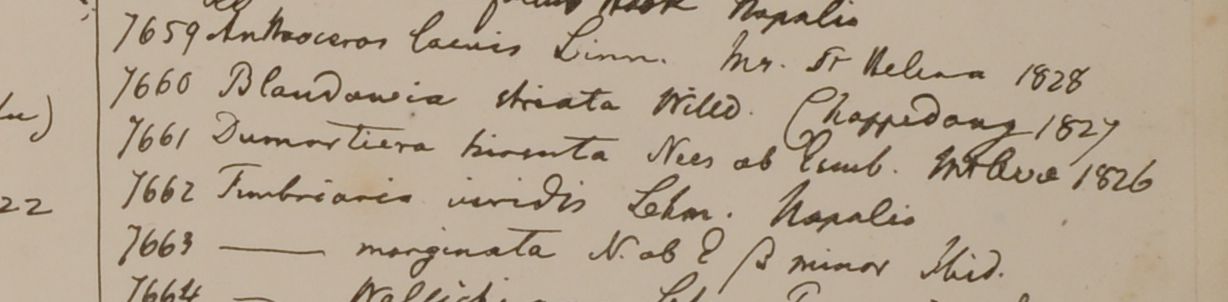 Napalia
7659 Anthoceros laevis Linn. Ins. St Helena 1828
7660 Blandowia striata Willd. Chappedong 1827
lu)
7661 Dumortiera hirsuta Nees ab Esenb. Mt Ava 1826
7662 Fimbriaria viridis Lehm. Napalia
22
7663 —— marginata N. ab E β minor Ibid.
7664 —